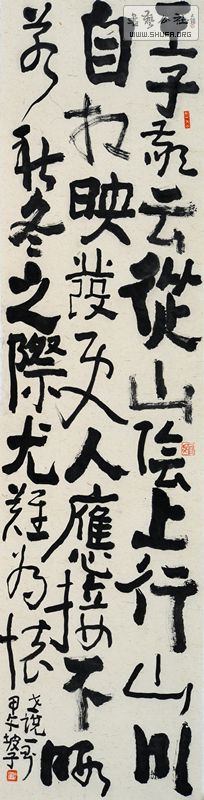 王子敬云從山陰上行山川
自相映發使人應接不暇
若秋冬之際尤難為懷
世說一則
甲午
WWW.SHUFA.ORG